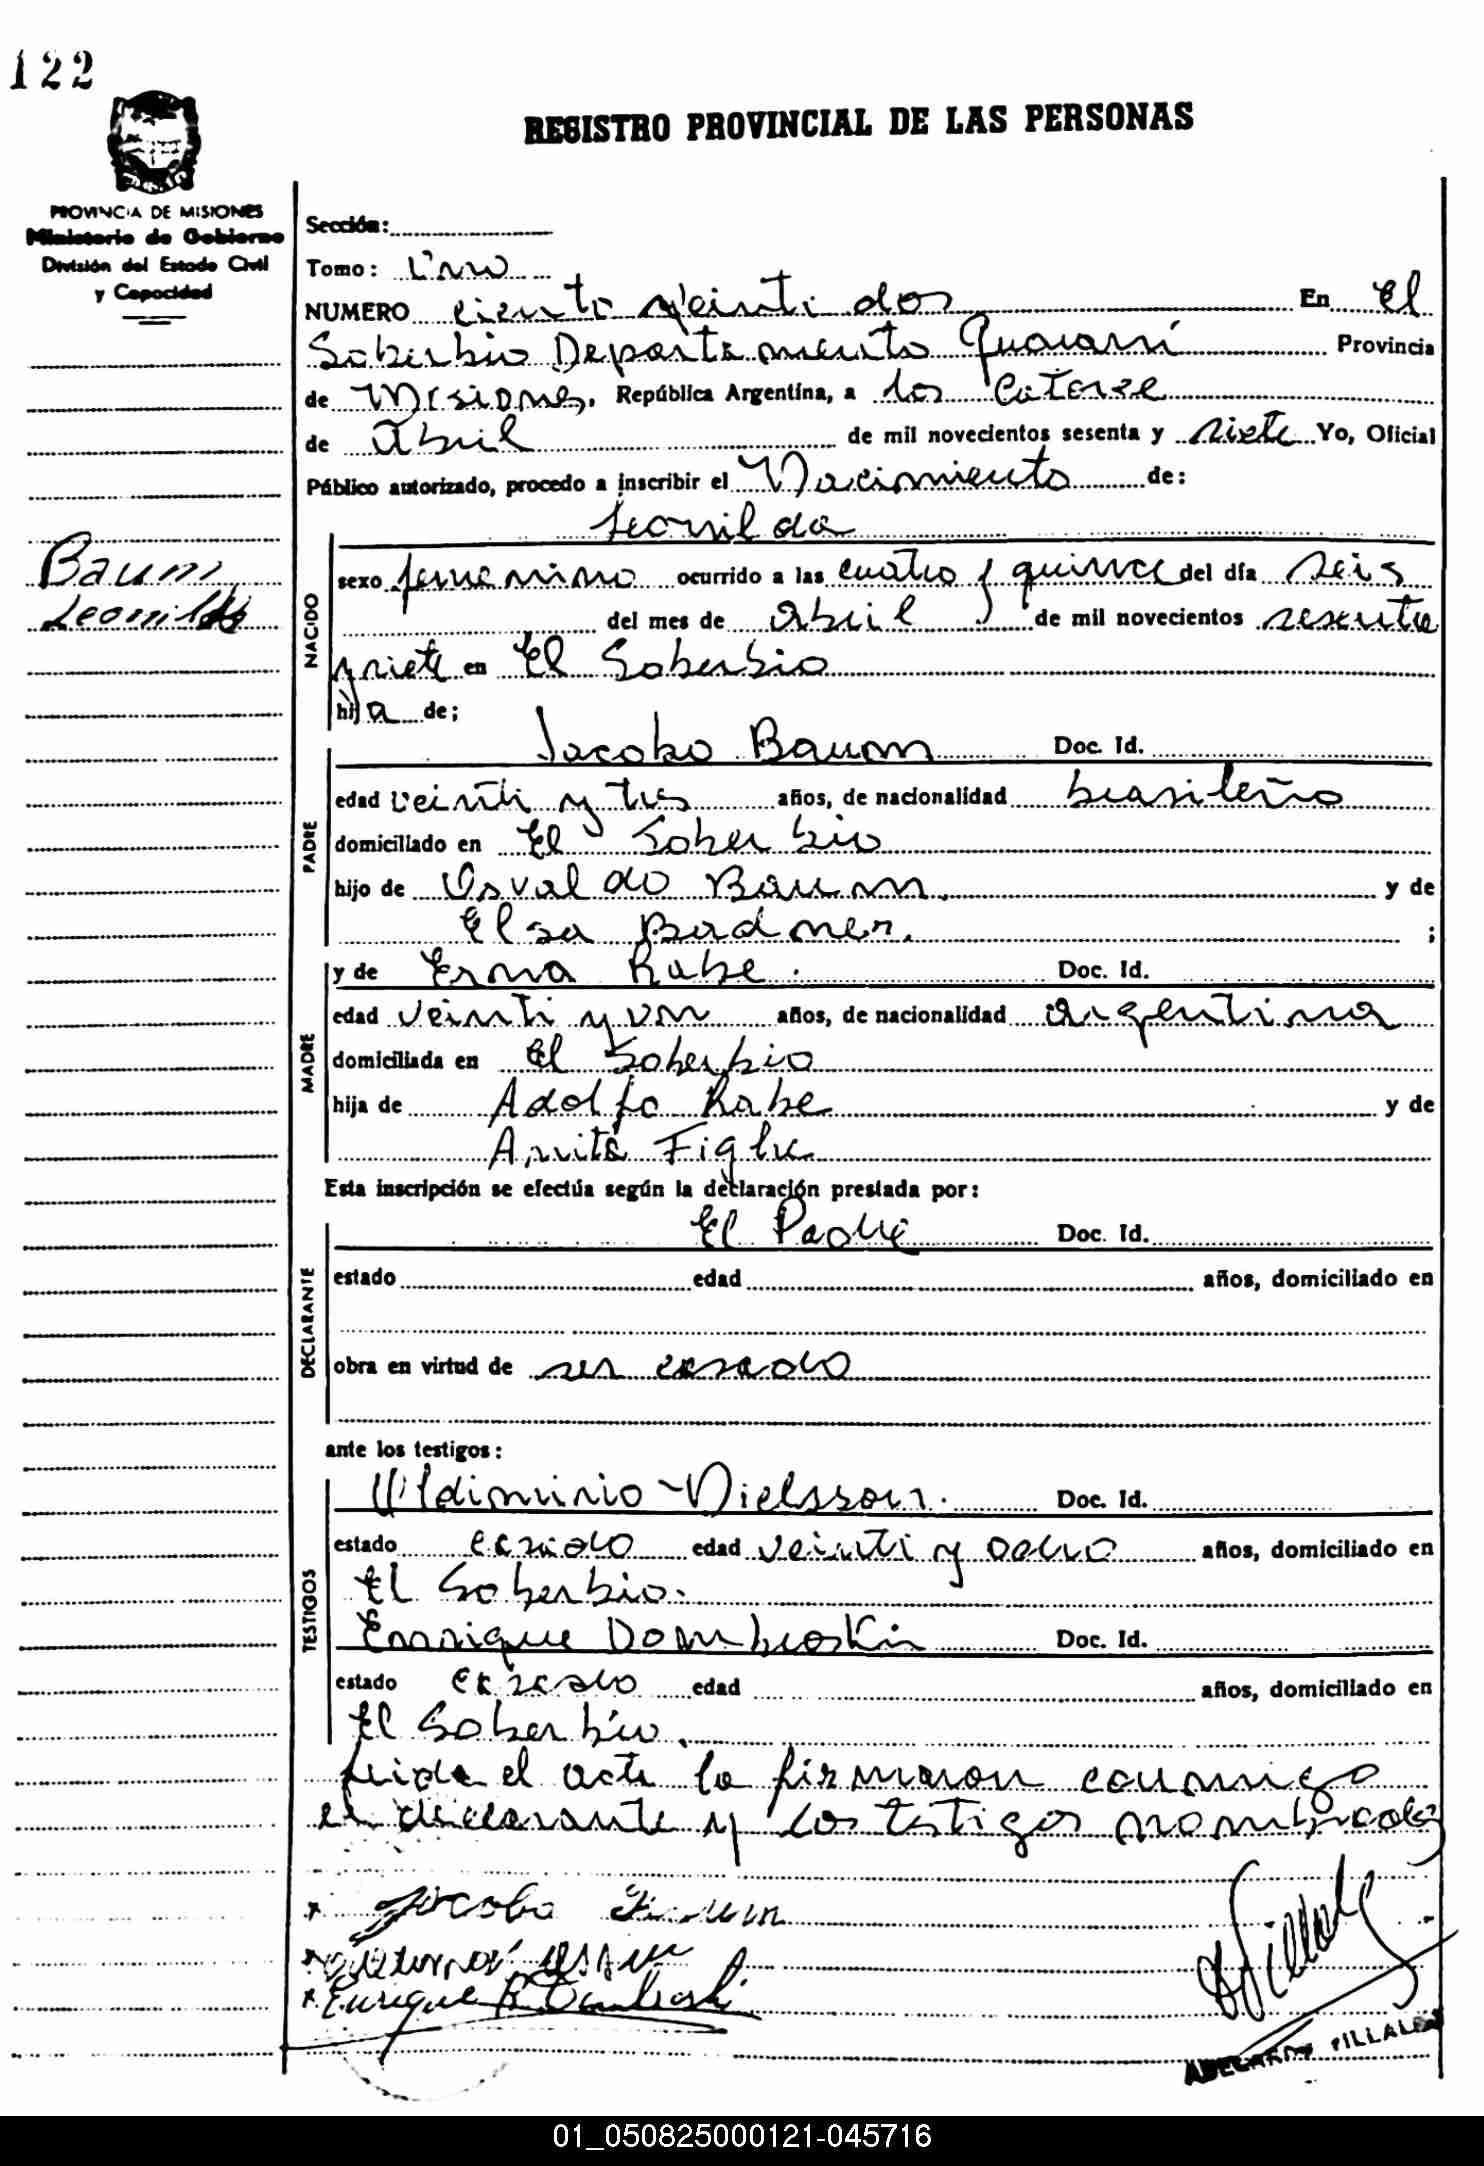 122
REGISTRO PROVINCIAL DE LAS PERSONAS
PROVINCIA DE MISIONES
Ministerio de Gobierno
División del Estado Civil
y Capacidad
Sección:
Tomo: Uno
NUMERO ciento veinti dos En El
Soberbio Departamento Guaraní Provincia
de Misiones, República Argentina, a los Catorze
de Abril de mil novecientos sesenta y siete Yo, Oficial
Público autorizado, procedo a inscribir el Nacimiento de:
Leonilda
Baum
Leonilda
NACIDO
sexo femenino ocurrido a las cuatro y quince del día seis
del mes de abril de mil novecientos sesenta
y siete en El Soberbio
hija de;
Jacobo Baum Doc. Id.
PADRE
edad veinti y tres años, de nacionalidad brasileño
domiciliado en El Soberbio
hijo de Osvaldo Baum y de
Elsa Badner. ;
MADRE
y de Erna Rabe. Doc. Id.
edad veinti y un años, de nacionalidad argentina
domiciliada en El Soberbio
hija de Adolfo Rabe y de
Anita
Esta inscripción se efectúa según la declaración prestada por:
DECLARANTE
El Padre Doc. Id.
estado edad años, domiciliado en
obra en virtud de ser casado
ante los testigos:
TESTIGOS
Doc. Id.
estado casado edad veinti y ocho años, domiciliado en
El Soberbio.
Enrrique Dombroskin Doc. Id.
estado casado edad años, domiciliado en
El Soberbio.
Leida el acta la firmaron conmigo
el declarante y los testigos nombrados
Jacobo Baum
Enrique
01_050825000121-045716